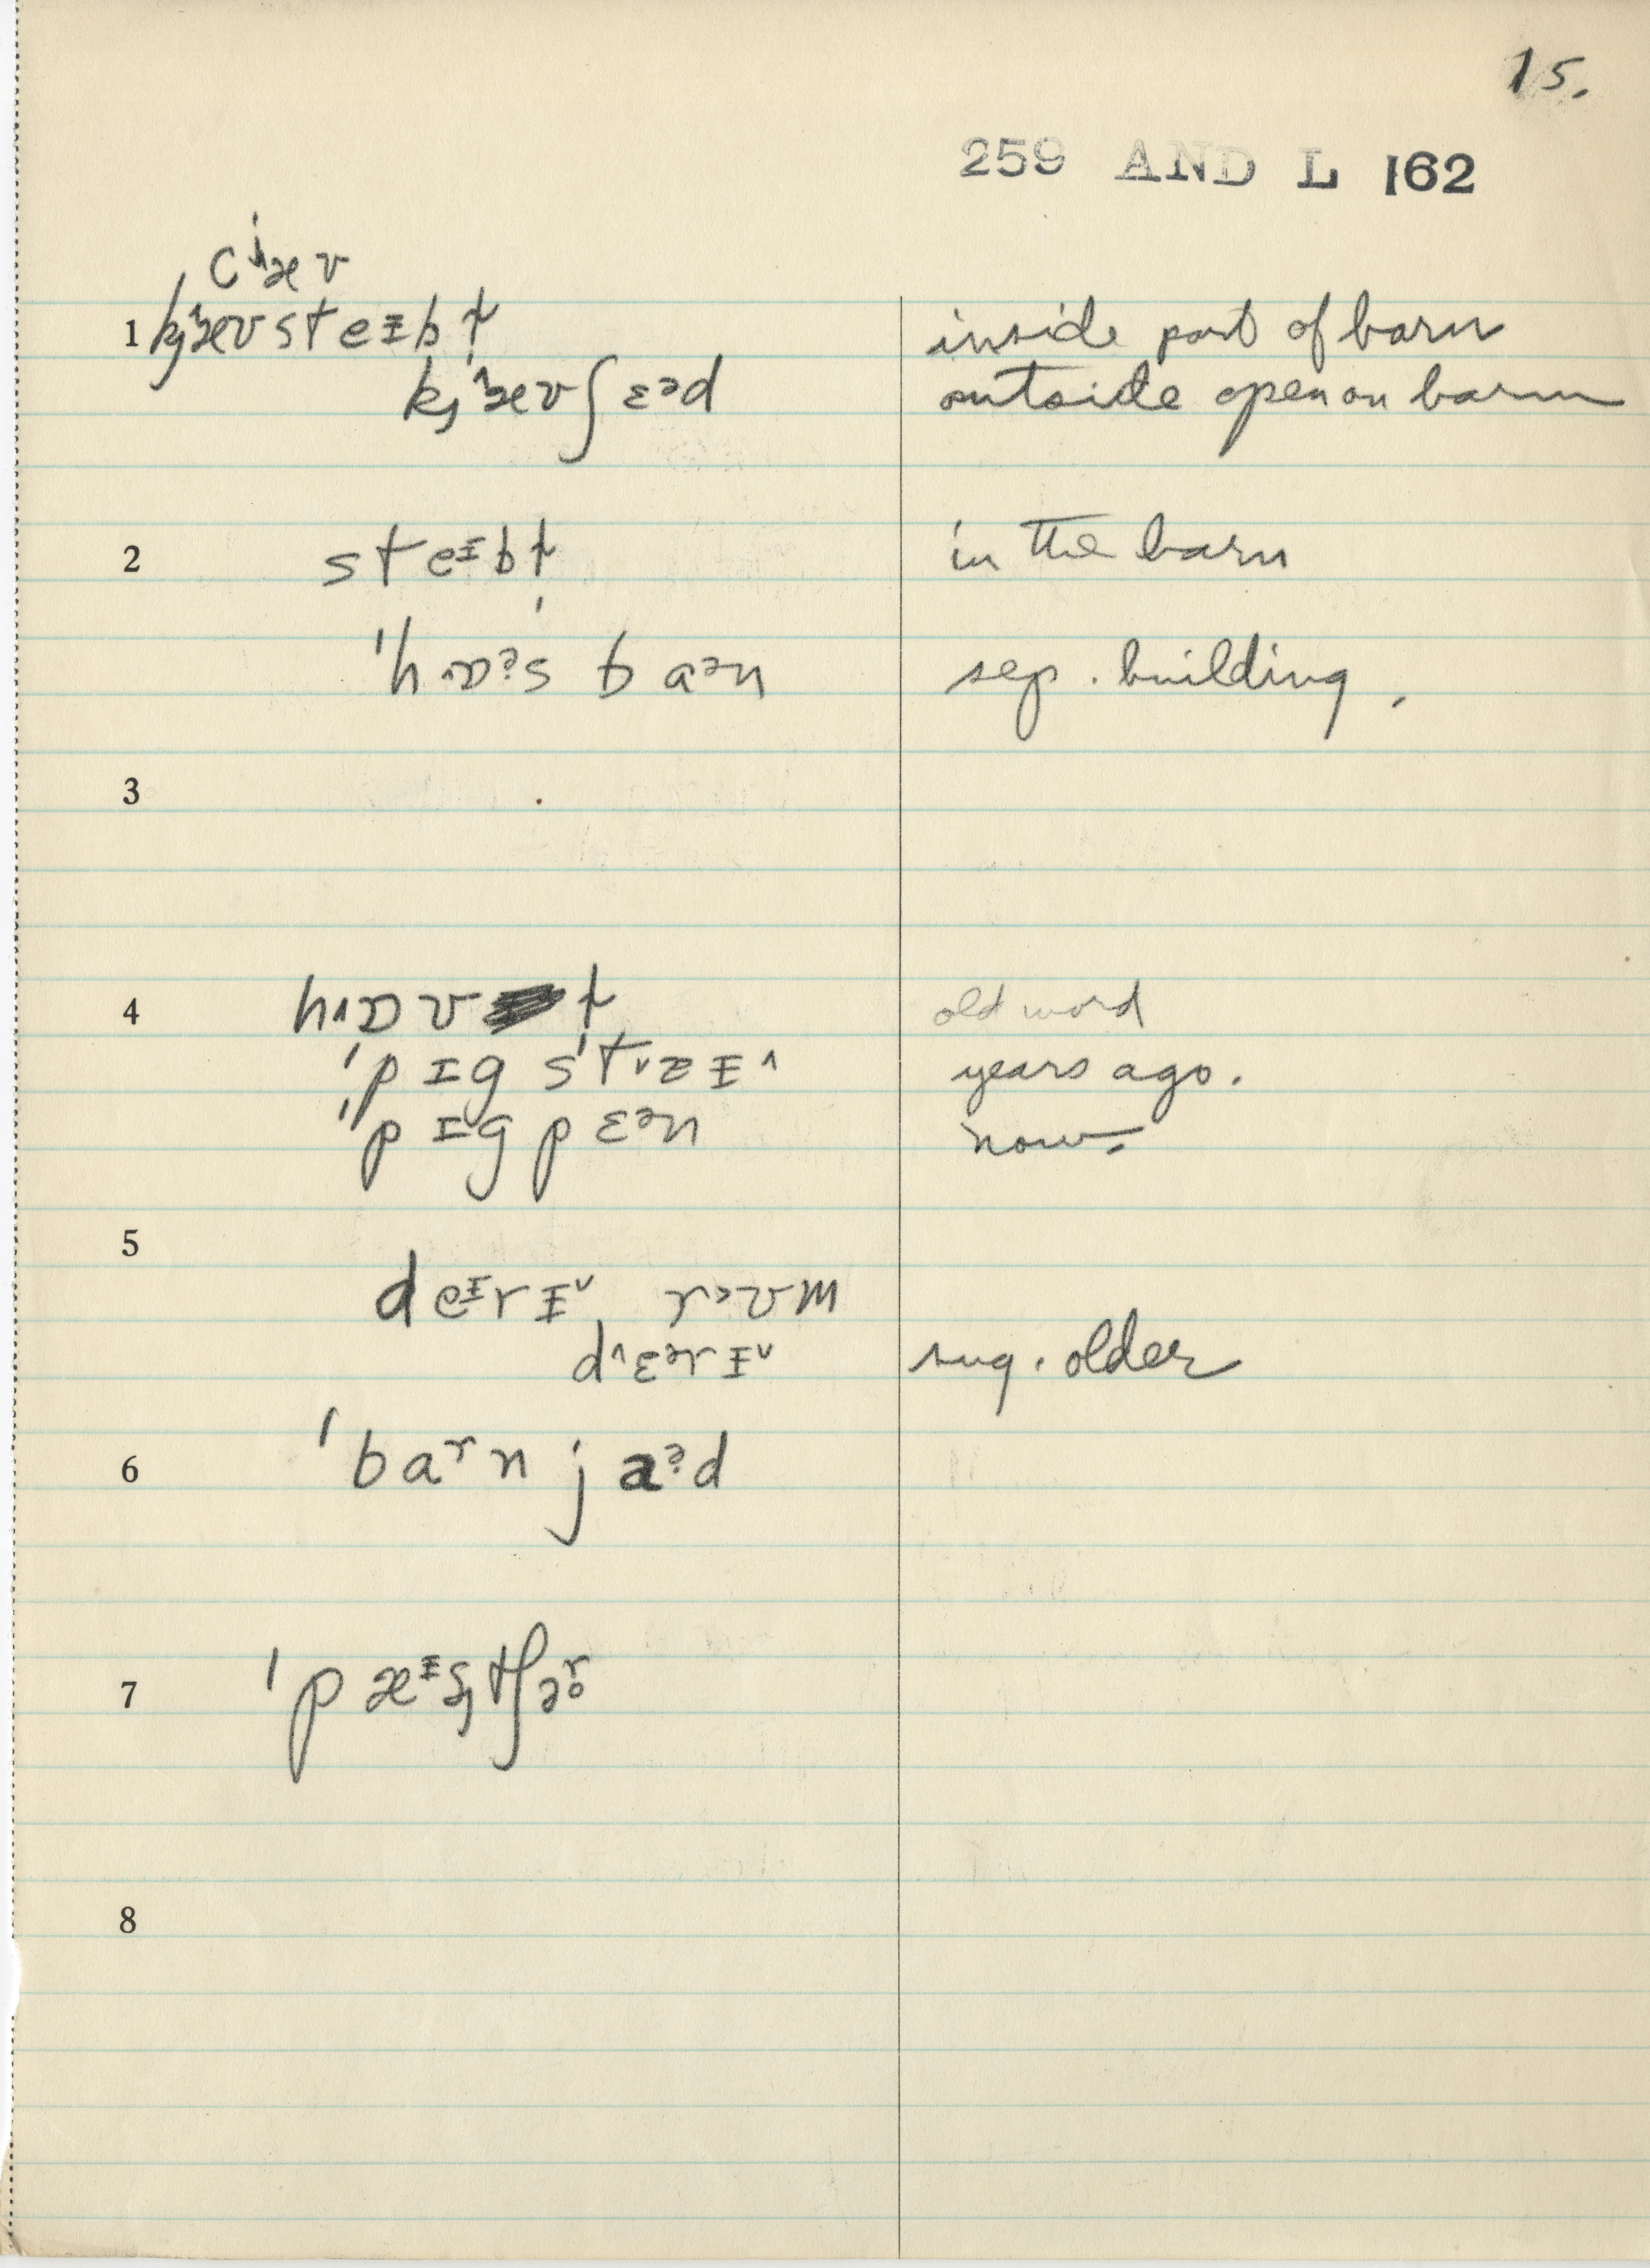 15.
259 AND L 162
cʲæʊ
1 kj˄æʊsteɪbl̩ inside part of barn
kj˄æʊʃɛᵊd outside open on barn
2 steᶤbl̩ in the barn
ˈh˄ɒᵊ̯s baᵊn sep. building.
3
4 h˄ɒvl̩ old word
ˈpɪg ˈst˅aɨ˄ years ago.
ˈpɪg pɛᵊn now.
5
deᶤrɨ˅ r>ʊm
d˄ɛᵊrɨ˅ sug. older
6 ˈbaʳn jaᵊ̯d
7 ˈpæᶤʂtʃəʳ
8